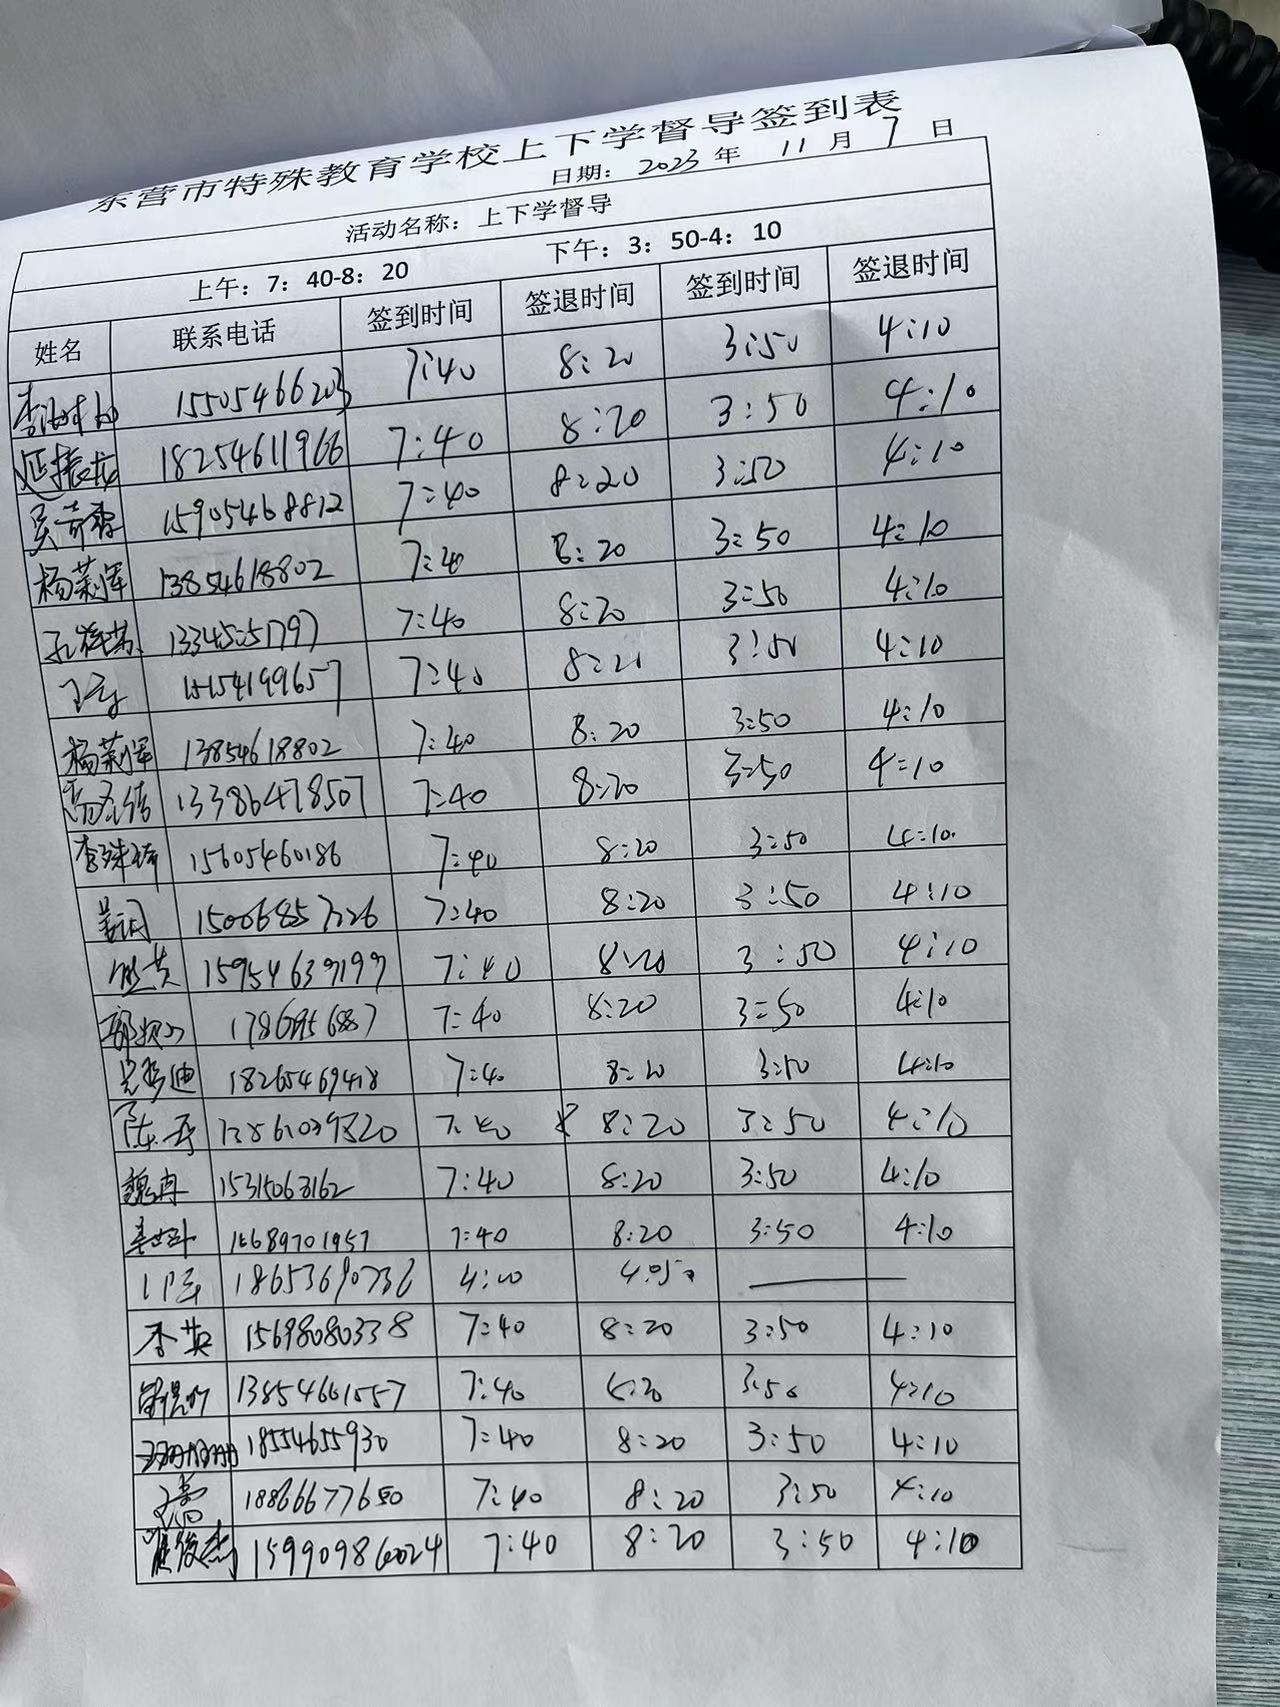 东营市特殊教育学校上下学督导签到表
日期：2023年 11月 7日
活动名称：上下学督导
上午：7：40-8：20 下午：3：50-4：10
姓名 联系电话 签到时间 签退时间 签到时间 签退时间
15505466203 7:40 8:20 3:50 4:10
延振龙 18254611966 7:40 8:20 3:50 4:10
15905468812 7:40 8:20 3:50 4:10
杨莱辉 13854618802 7:40 8:20 3:50 4:10
7:40 8:20 3:50 4:10
15154199657 7:40 3:50 4:10
杨莱辉 13854618802 7:40 8:20 3:50 4:10
13386478507 7:40 8:20 3:50 4:10
李珠琦 15605460186 7:40 8:20 3:50 4:10
姜润 7:40 8:20 3:50 4:10
15954639199 7:40 8:20 3:50 4:10
7:40 8:20 3:50 4:10
18265469418 7:40 8:20 3:50 4:10
7:40 8:20 3:50 4:10
魏冉 15315063162 7:40 8:20 3:50 4:10
15689701957 7:40 8:20 3:50 4:10
18653690736
李英 15698080338 7:40 8:20 3:50 4:10
13854661557 7:40 3:50 4:10
18554655930 7:40 8:20 3:50 4:10
18866677650 7:40 8:20 3:50 4:10
崔俊杰 15990986024 7:40 8:20 3:50 4:10